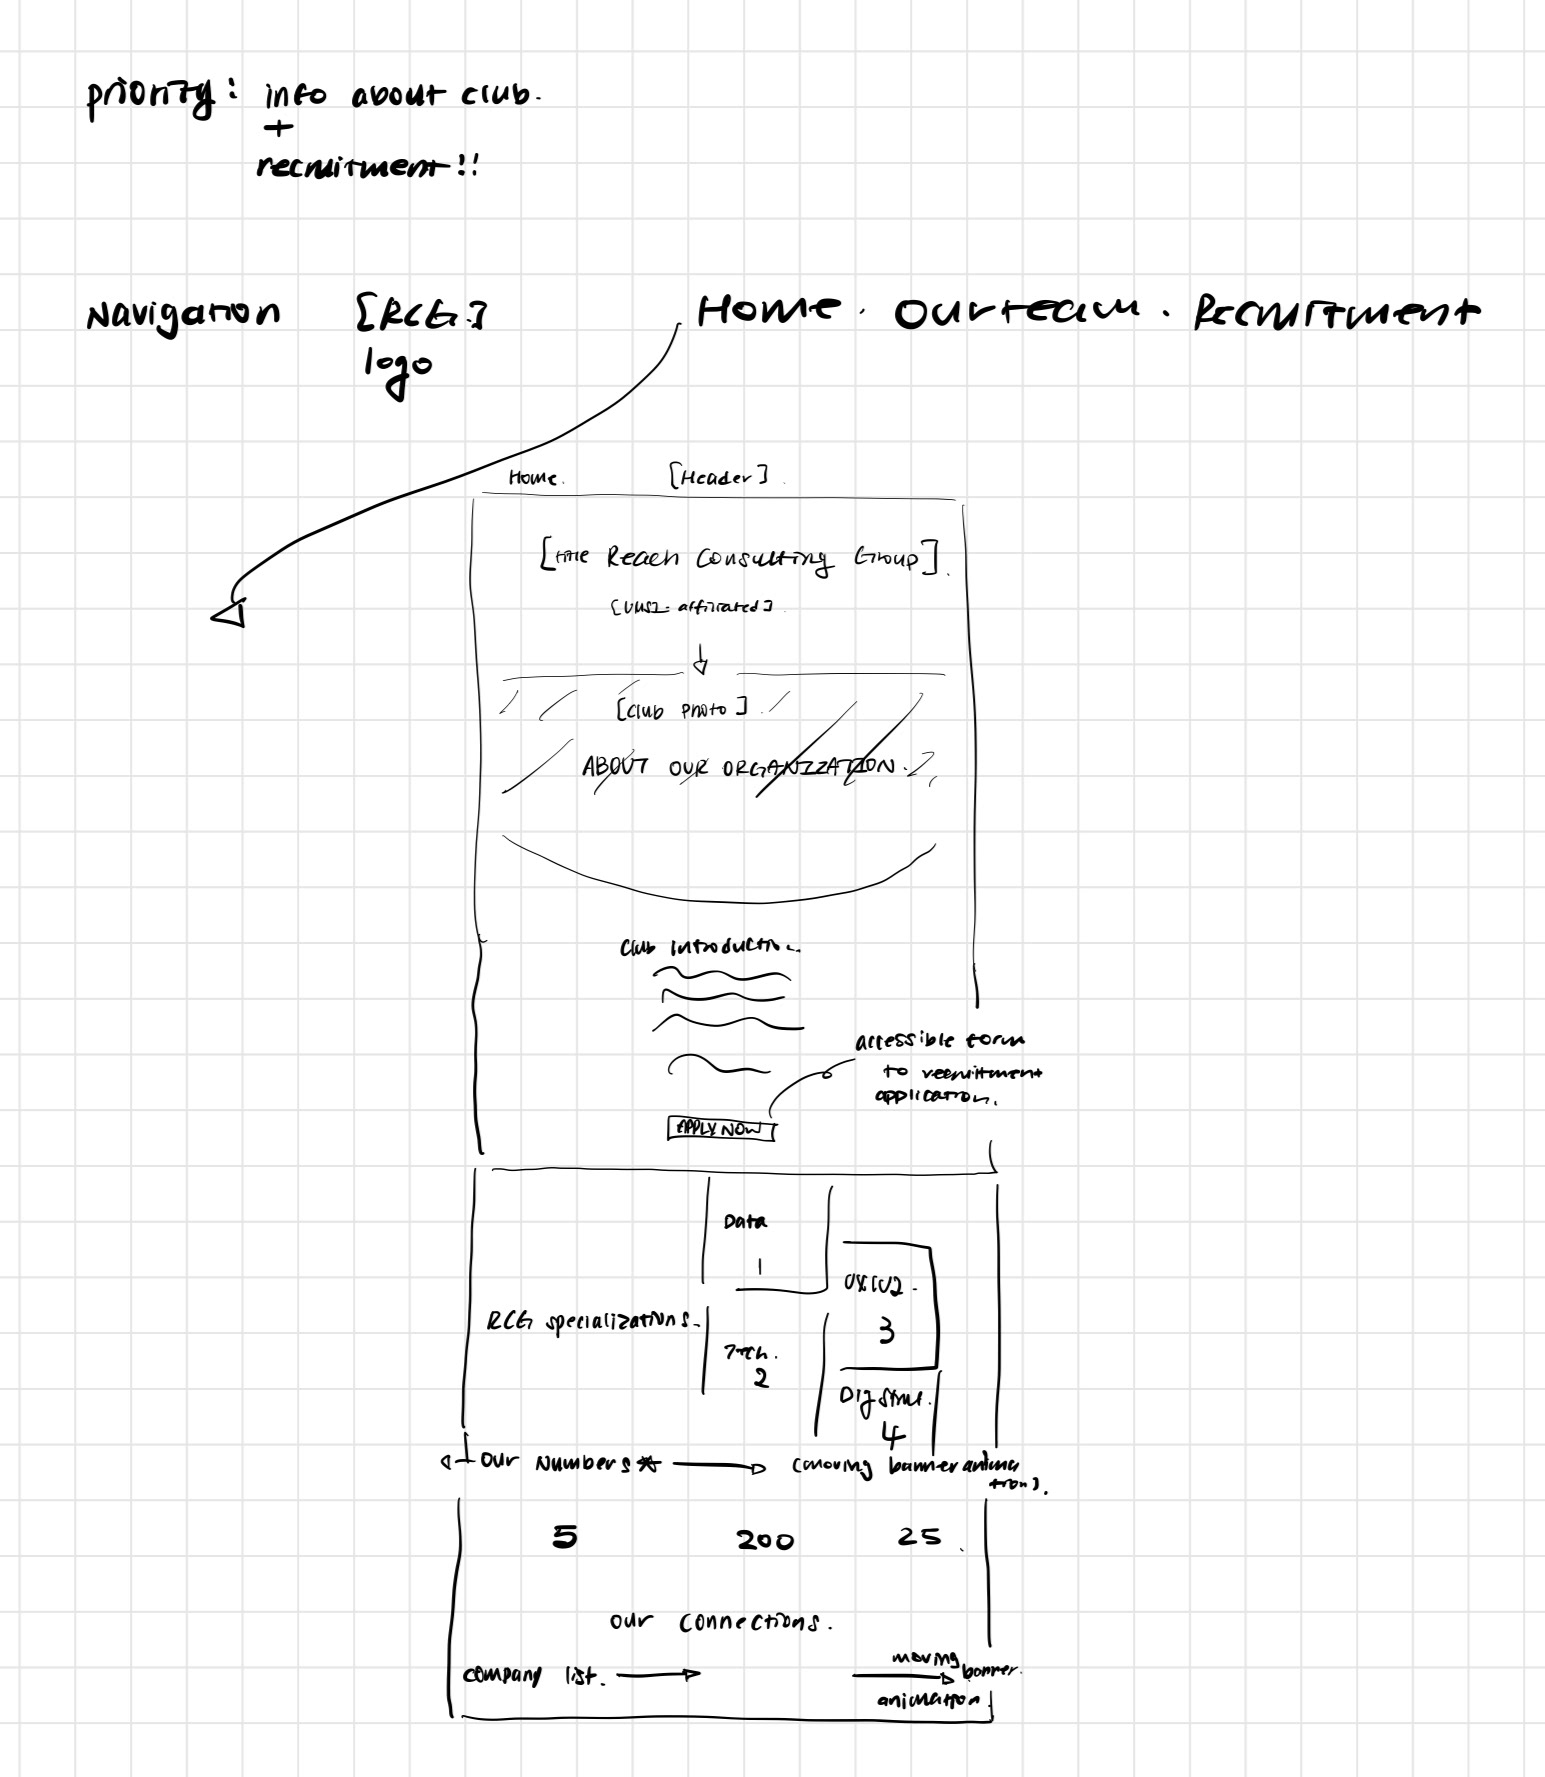 priority: info about club.
+
recruitment!!
Navigation [RCG] Home. Our team. Recruitment
logo
Home. [Header].
[The Reach Consulting Group].
affiliated]
[Club photo].
ABOUT OUR ORGANIZATION.
Club introduction.
accessible form
to recruitment
application.
APPLY NOW
Data
1
UX/UI.
3
RCG specializations.
Tech.
2
Dig Strat.
4
Our Numbers* (moving banner anima
tion).
5 200 25.
Our connections.
company list. moving banner.
animation.